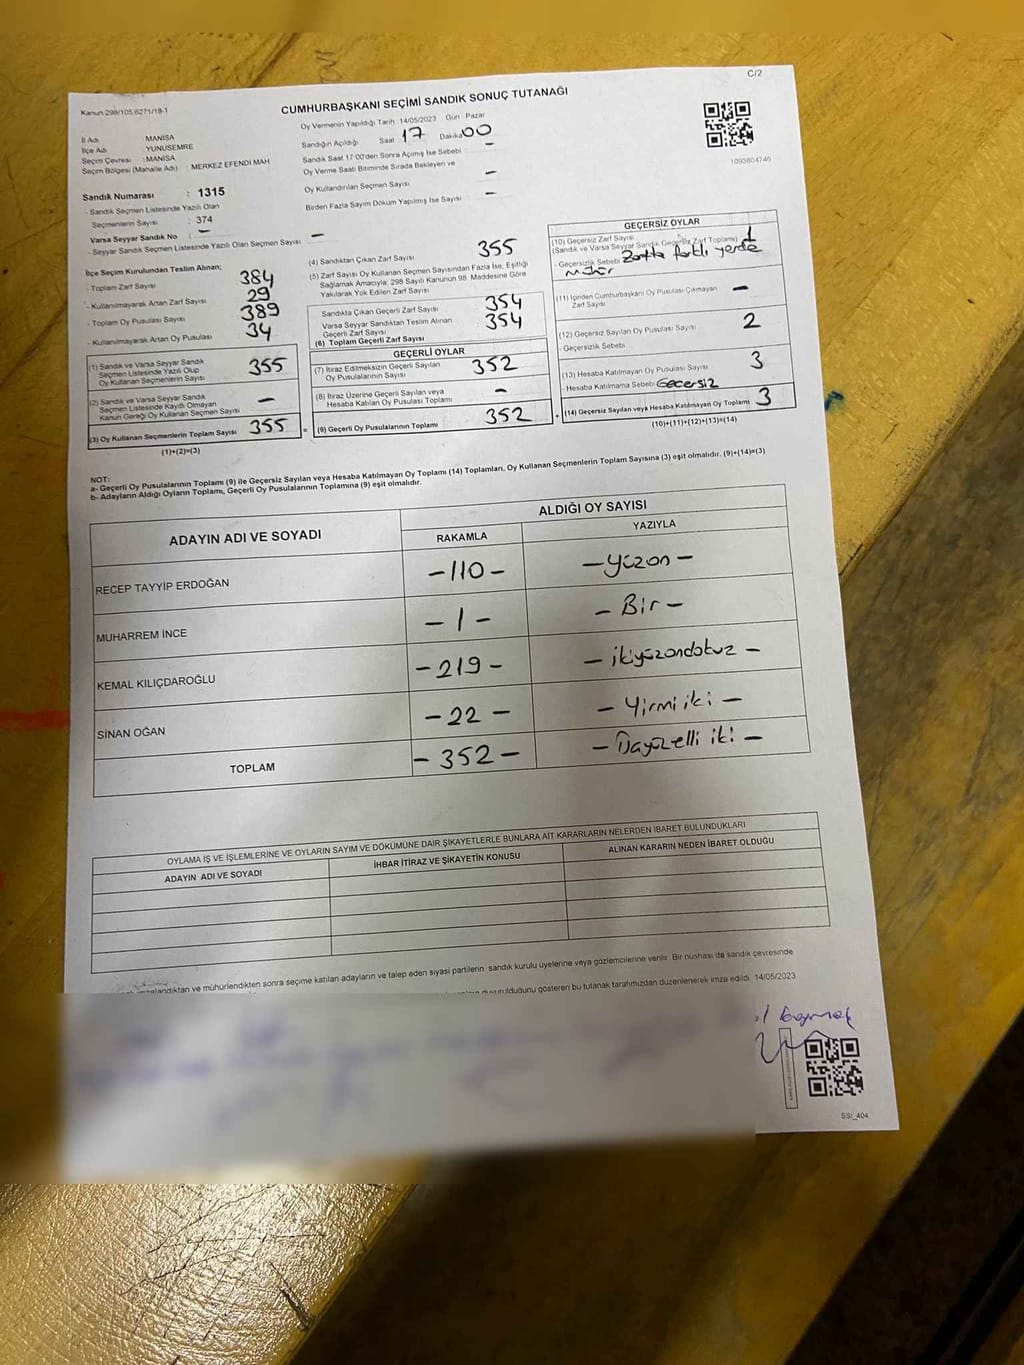 C/2
Kanun 298/105,6271/18-1
CUMHURBAŞKANI SEÇİMİ SANDIK SONUÇ TUTANAĞI
İl Adı : MANİSA
İlçe Adı : YUNUSEMRE
Seçim Çevresi : MANİSA
Seçim Bölgesi (Mahalle Adı) : MERKEZ EFENDİ MAH
Sandık Numarası : 1315
- Sandık Seçmen Listesinde Yazılı Olan
Seçmenlerin Sayısı : 374
Varsa Seyyar Sandık No : -
- Seyyar Sandık Seçmen Listesinde Yazılı Olan Seçmen Sayısı -
Oy Vermenin Yapıldığı Tarih : 14/05/2023 Gün : Pazar
Sandığın Açıldığı Saat 17 Dakika 00
Sandık Saat 17:00'den Sonra Açılmış İse Sebebi -
Oy Verme Saati Bitiminde Sırada Bekleyen ve
Oy Kullandırılan Seçmen Sayısı -
Birden Fazla Sayım Döküm Yapılmış İse Sayısı -
1093804746
İlçe Seçim Kurulundan Teslim Alınan;
- Toplam Zarf Sayısı 384
- Kullanılmayarak Artan Zarf Sayısı 29
- Toplam Oy Pusulası Sayısı 389
- Kullanılmayarak Artan Oy Pusulası 34
(1) Sandık ve Varsa Seyyar Sandık
Seçmen Listesinde Yazılı Olup
Oy Kullanan Seçmenlerin Sayısı 355
(2) Sandık ve Varsa Seyyar Sandık
Seçmen Listesinde Kayıtlı Olmayan
Kanun Gereği Oy Kullanan Seçmen Sayısı -
(3) Oy Kullanan Seçmenlerin Toplam Sayısı 355 =
(1)+(2)=(3)
(4) Sandıktan Çıkan Zarf Sayısı 355
(5) Zarf Sayısı Oy Kullanan Seçmen Sayısından Fazla İse, Eşitliği
Sağlamak Amacıyla, 298 Sayılı Kanunun 98. Maddesine Göre
Yakılarak Yok Edilen Zarf Sayısı
Sandıkta Çıkan Geçerli Zarf Sayısı 354
Varsa Seyyar Sandıktan Teslim Alınan
Geçerli Zarf Sayısı 354
(6) Toplam Geçerli Zarf Sayısı
GEÇERLİ OYLAR
(7) İtiraz Edilmeksizin Geçerli Sayılan
Oy Pusulalarının Sayısı 352
(8) İtiraz Üzerine Geçerli Sayılan veya
Hesaba Katılan Oy Pusulası Toplamı -
(9) Geçerli Oy Pusulalarının Toplamı 352 +
GEÇERSİZ OYLAR
(10) Geçersiz Zarf Sayısı
(Sandık ve Varsa Seyyar Sandık Geçersiz Zarf Toplamı) 1
- Geçersizlik Sebebi Zarfta farklı yerde
mühür
(11) İçinden Cumhurbaşkanı Oy Pusulası Çıkmayan
Zarf Sayısı -
(12) Geçersiz Sayılan Oy Pusulası Sayısı 2
- Geçersizlik Sebebi
(13) Hesaba Katılmayan Oy Pusulası Sayısı 3
- Hesaba Katılmama Sebebi Geçersiz
(14) Geçersiz Sayılan veya Hesaba Katılmayan Oy Toplamı 3
(10)+(11)+(12)+(13)=(14)
NOT:
a- Geçerli Oy Pusulalarının Toplamı (9) ile Geçersiz Sayılan veya Hesaba Katılmayan Oy Toplamı (14) Toplamları, Oy Kullanan Seçmenlerin Toplam Sayısına (3) eşit olmalıdır. (9)+(14)=(3)
b- Adayların Aldığı Oyların Toplamı, Geçerli Oy Pusulalarının Toplamına (9) eşit olmalıdır.
ADAYIN ADI VE SOYADI ALDIĞI OY SAYISI
RAKAMLA YAZIYLA
RECEP TAYYİP ERDOĞAN -110- -Yüzon-
MUHARREM İNCE -1- -Bir-
KEMAL KILIÇDAROĞLU -219- -ikiyüzondokuz-
SİNAN OĞAN -22- -Yirmi iki-
TOPLAM -352- -Üçyüzelli iki-
OYLAMA İŞ VE İŞLEMLERİNE VE OYLARIN SAYIM VE DÖKÜMÜNE DAİR ŞİKAYETLERLE BUNLARA AİT KARARLARIN NELERDEN İBARET BULUNDUKLARI
ADAYIN ADI VE SOYADI İHBAR İTİRAZ VE ŞİKAYETİN KONUSU ALINAN KARARIN NEDEN İBARET OLDUĞU
imzalandıktan ve mühürlendikten sonra seçime katılan adayların ve talep eden siyasi partilerin sandık kurulu üyelerine veya gözlemcilerine verilir. Bir nüshası da sandık çevresinde
duyurulduğunu gösteren bu tutanak tarafımızdan düzenlenerek imza edildi. 14/05/2023
SSI_404